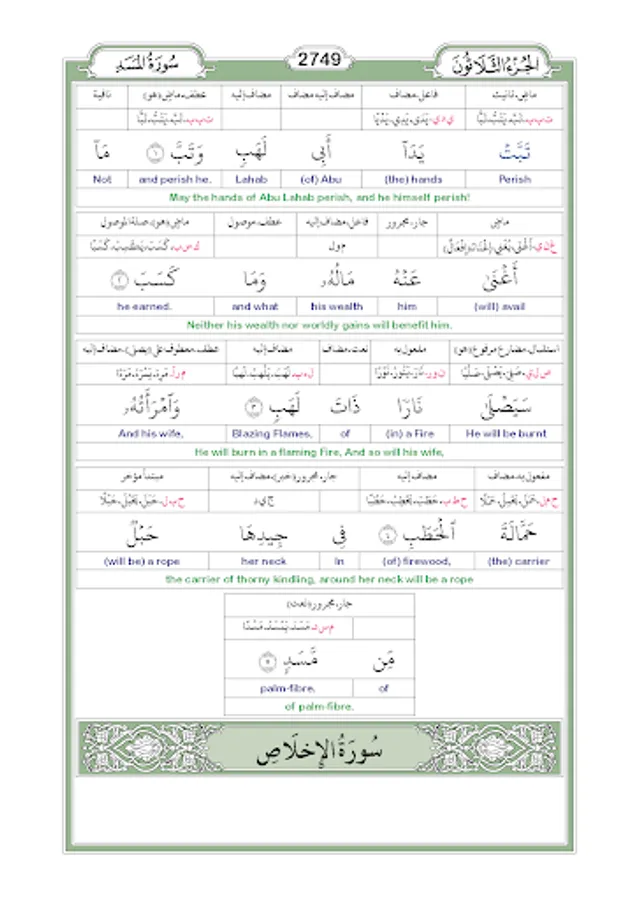 الجُزءُ الثَّلَاثُونَ 2749 سُورَةُ المَسَدِ
ماضٍ، تانيث فاعل، مضاف مضاف إليه، مضاف مضاف إليه عطف، ماضٍ (هو) نافية
ت ب ب، ي د ي، ت ب ب،
تَبَّتْ يَدَآ أَبِى لَهَبٍ وَتَبَّ ١ مَآ
Perish (the) hands (of) Abu Lahab and perish he. Not
May the hands of Abu Lahab perish, and he himself perish!
ماضٍ جار، مجرور فاعل، مضاف إليه عطف، موصول ماضٍ (هو)، صلة الموصول
غ ن ي، م و ل ك س ب،
أَغْنَىٰ عَنْهُ مَالُهُۥ وَمَا كَسَبَ ٢
(will) avail him his wealth and what he earned.
Neither his wealth nor worldly gains will benefit him.
استقبال، مضارع مرفوع (هو) مفعول به نعت، مضاف مضاف إليه
ص ل ي، ن و ر، ل ه ب، م ر أ،
سَيَصْلَىٰ نَارًا ذَاتَ لَهَبٍ ٣ وَٱمْرَأَتُهُۥ
He will be burnt (in) a Fire of Blazing Flames, And his wife,
He will burn in a flaming Fire, And so will his wife,
مفعول به، مضاف مضاف إليه جار، مجرور (خبر)، مضاف إليه مبتدأ مؤخر
ح م ل، ح ط ب، ج ي د ح ب ل،
حَمَّالَةَ ٱلْحَطَبِ ٤ فِى جِيدِهَا حَبْلٌ
(the) carrier (of) firewood, In her neck (will be) a rope
the carrier of thorny kindling, around her neck will be a rope
جار، مجرور (نعت)
م س د،
مِّن مَّسَدٍۭ ٥
of palm-fibre.
of palm-fibre.
سُورَةُ الإِخلَاصِ